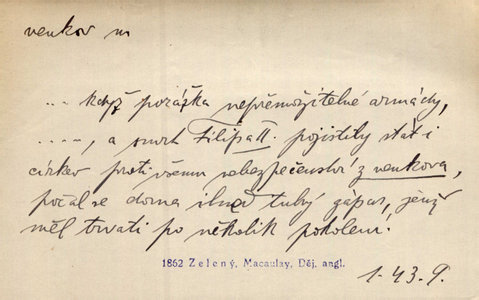 venkov m
... když porážka nepřemožitelné armády,
...., a smrt Filipa II. pojistily stát i
církev proti všemu nebezpečenství z venkova,
počal se doma ihned tuhý zápas, jenž
měl trvati po několik pokolení.
1862 Zelený, Macaulay, Děj. angl.
1.43.9.